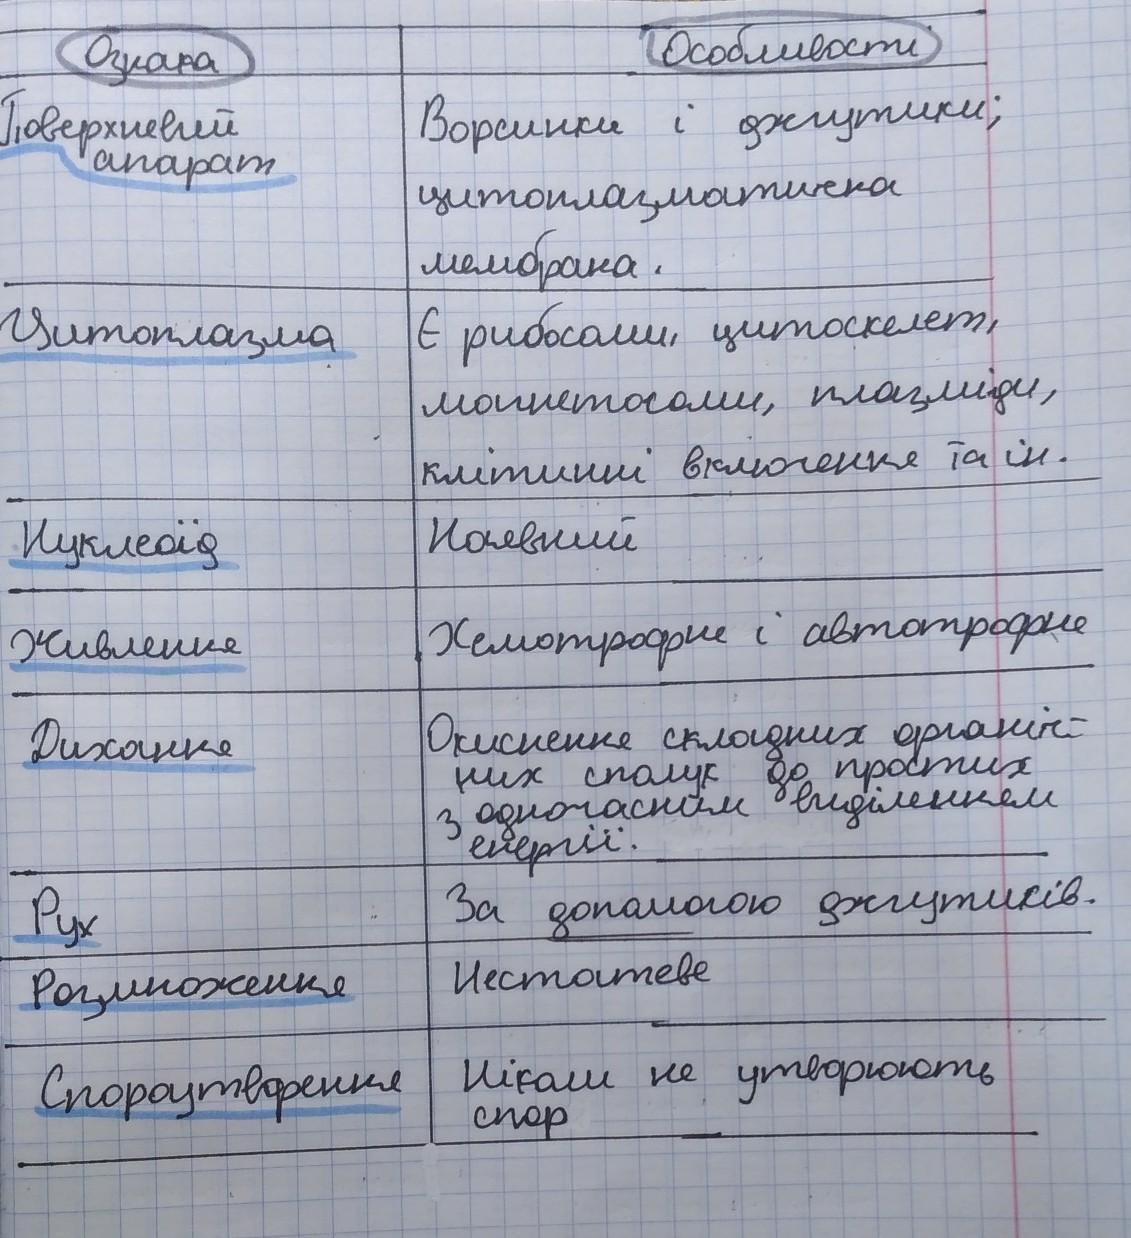 Ознака
Особливости
Поверхневий
апарат
Ворсинки і джгутики;
цитоплазматична
мембрана.
Цитоплазма
Є рибосоми, цитоскелет,
магнетосоми, плазміди,
клітинні включення та ін.
Нуклеоїд
Наявний
Живлення
Хемотрофне і автотрофне
Дихання
Окиснення складних органіч-
них сполук до простих
з одночасним виділенням
енергії.
Рух
За допомогою джгутиків.
Розмноження
Нестатеве
Спороутворення
Ніколи не утворюють
спор